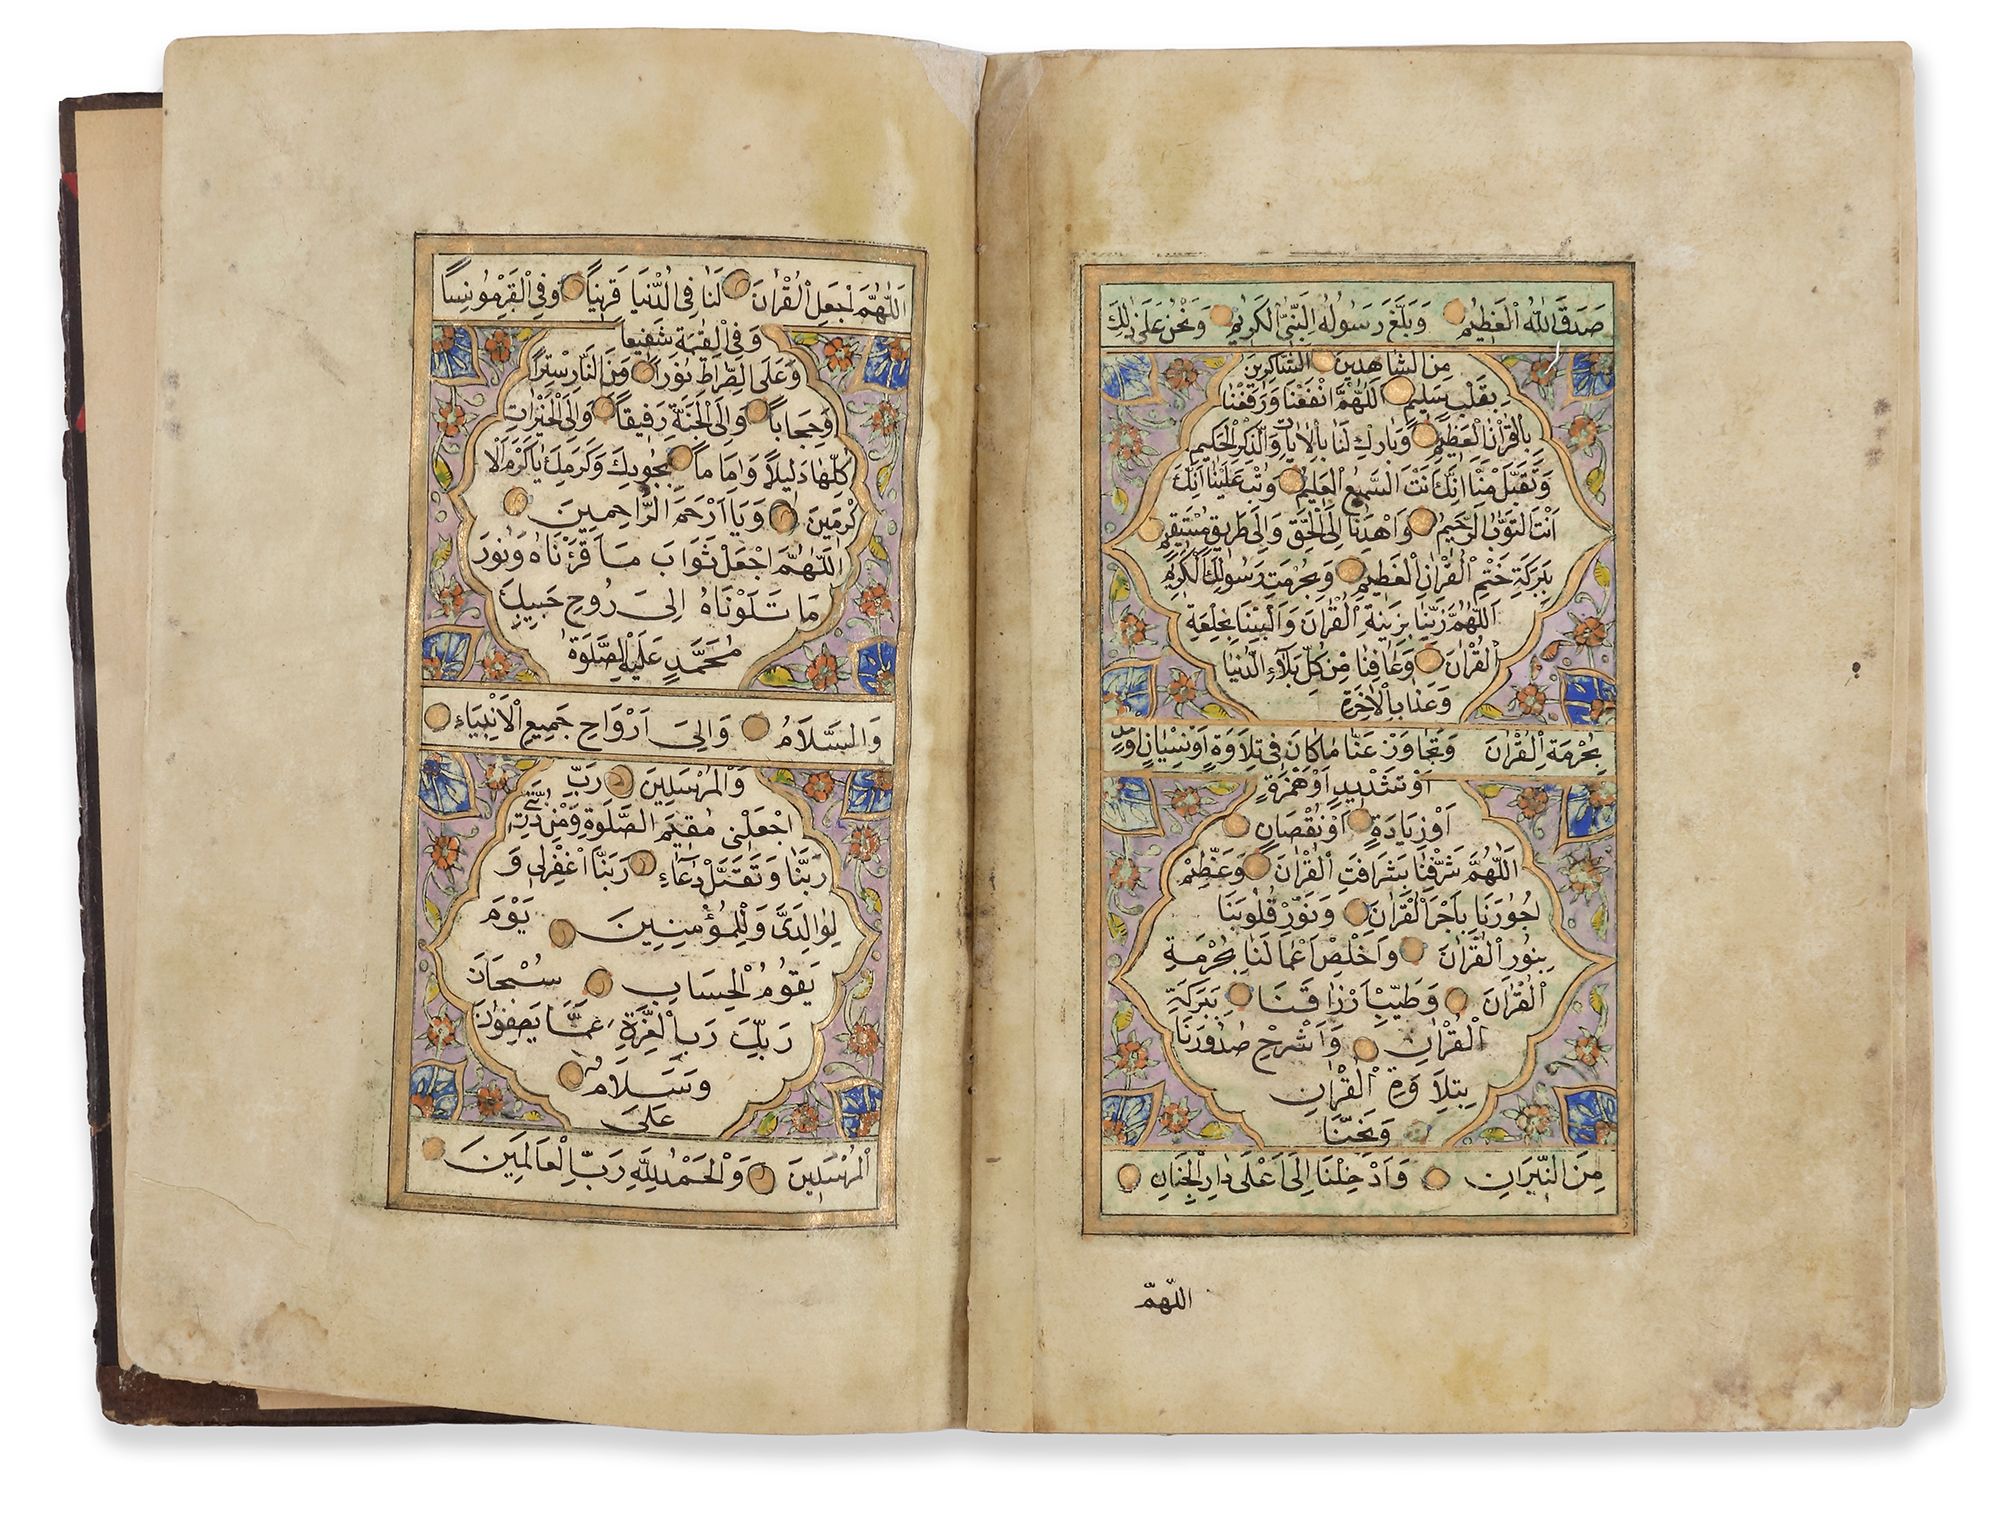 صَدَقَ اللهُ الْعَظِيمُ وَبَلَّغَ رَسُولُهُ النَّبِيُّ الْكَرِيمُ وَنَحْنُ عَلَى ذٰلِكَ
مِنَ الشَّاهِدِينَ الشَّاكِرِينَ
بِقَلْبٍ سَلِيمٍ اَللّٰهُمَّ انْفَعْنَا وَرَفِّعْنَا
بِالْقُرْاٰنِ الْعَظِيمِ وَبَارِكْ لَنَا بِالْاٰيَاتِ وَالذِّكْرِ الْحَكِيمِ
وَتَقَبَّلْ مِنَّا اِنَّكَ اَنْتَ السَّمِيعُ الْعَلِيمُ وَتُبْ عَلَيْنَا اِنَّكَ
اَنْتَ التَّوَّابُ الرَّحِيمُ وَاهْدِنَا اِلَى الْحَقِّ وَاِلَى طَرِيقٍ مُسْتَقِيمٍ
بِبَرَكَةِ خَتْمِ الْقُرْاٰنِ الْعَظِيمِ وَبِحُرْمَتِ رَسُولِكَ الْكَرِيمِ
اَللّٰهُمَّ زَيِّنَّا بِزِينَةِ الْقُرْاٰنِ وَاَلْبِسْنَا بِخِلْعَةِ
الْقُرْاٰنِ وَعَافِنَا مِنْ كُلِّ بَلَاءِ الدُّنْيَا
وَعَذَابِ الْاٰخِرَةِ
بِحُرْمَةِ الْقُرْاٰنَ وَتَجَاوَزْ عَنَّا مَا كَانَ فِي تِلَاوَةٍ اَوْ نِسْيَانٍ
اَوْ تَشْدِيدٍ اَوْ هَمْزَةٍ
اَوْ زِيَادَةٍ اَوْ نُقْصَانٍ
اَللّٰهُمَّ شَرِّفْنَا بِشَرَافَتِ الْقُرْاٰنَ وَعَظِّمْ
اُجُورَنَا بِاَجْرِ الْقُرْاٰنَ وَنَوِّرْ قُلُوبَنَا
بِنُورِ الْقُرْاٰنَ وَاَخْلِصْ اَعْمَالَنَا بِحُرْمَةِ
الْقُرْاٰنَ وَطَيِّبْ اَرْزَاقَنَا بِبَرَكَةِ
الْقُرْاٰنِ وَاَشْرِحْ صُدُورَنَا
بِتِلَاوَةِ الْقُرْاٰنِ
وَنَجِّنَا
مِنَ النِّيرَانِ وَاَدْخِلْنَا اِلَى اَعْلَى دَارِ الْجِنَانِ
اللّٰهمّ
اَللّٰهُمَّ اجْعَلِ الْقُرْاٰنَ لَنَا فِي الدُّنْيَا قَرِينًا وَفِي الْقَبْرِ مُونِسًا
وَفِي الْقِيٰمَةِ شَفِيعًا
وَعَلَى الصِّرَاطِ نُورًا وَمِنَ النَّارِ سِتْرًا
وَحِجَابًا وَاِلَى الْجَنَّةِ رَفِيقًا وَاِلَى الْخَيْرَاتِ
كُلِّهَا دَلِيلًا وَاِمَامًا بِجُودِكَ وَكَرَمِكَ يَا اَكْرَمَ الْاَ
كْرَمِينَ وَيَا اَرْحَمَ الرَّاحِمِينَ
اَللّٰهُمَّ اجْعَلْ ثَوَابَ مَا قَرَئْنَاهُ وَنُورَ
مَا تَلَوْنَاهُ اِلَى رُوحِ حَبِيبِكَ
مُحَمَّدٍ عَلَيْهِ الصَّلَوةُ
وَالسَّلَامُ وَاِلَى اَرْوَاحِ جَمِيعِ الْاَنْبِيَاءِ
وَالْمُرْسَلِينَ رَبِّ
اجْعَلْنِي مُقِيمَ الصَّلٰوةِ وَمِنْ ذُرِّيَّتِي
رَبَّنَا وَتَقَبَّلْ دُعَاءِ رَبَّنَا اغْفِرْلِي وَ
لِوَالِدَيَّ وَلِلْمُؤْمِنِينَ يَوْمَ
يَقُومُ الْحِسَابِ سُبْحَانَ
رَبِّكَ رَبِّ الْعِزَّةِ عَمَّا يَصِفُونَ
وَسَلَامٌ
عَلَى
الْمُرْسَلِينَ وَالْحَمْدُ لِلّٰهِ رَبِّ الْعَالَمِينَ